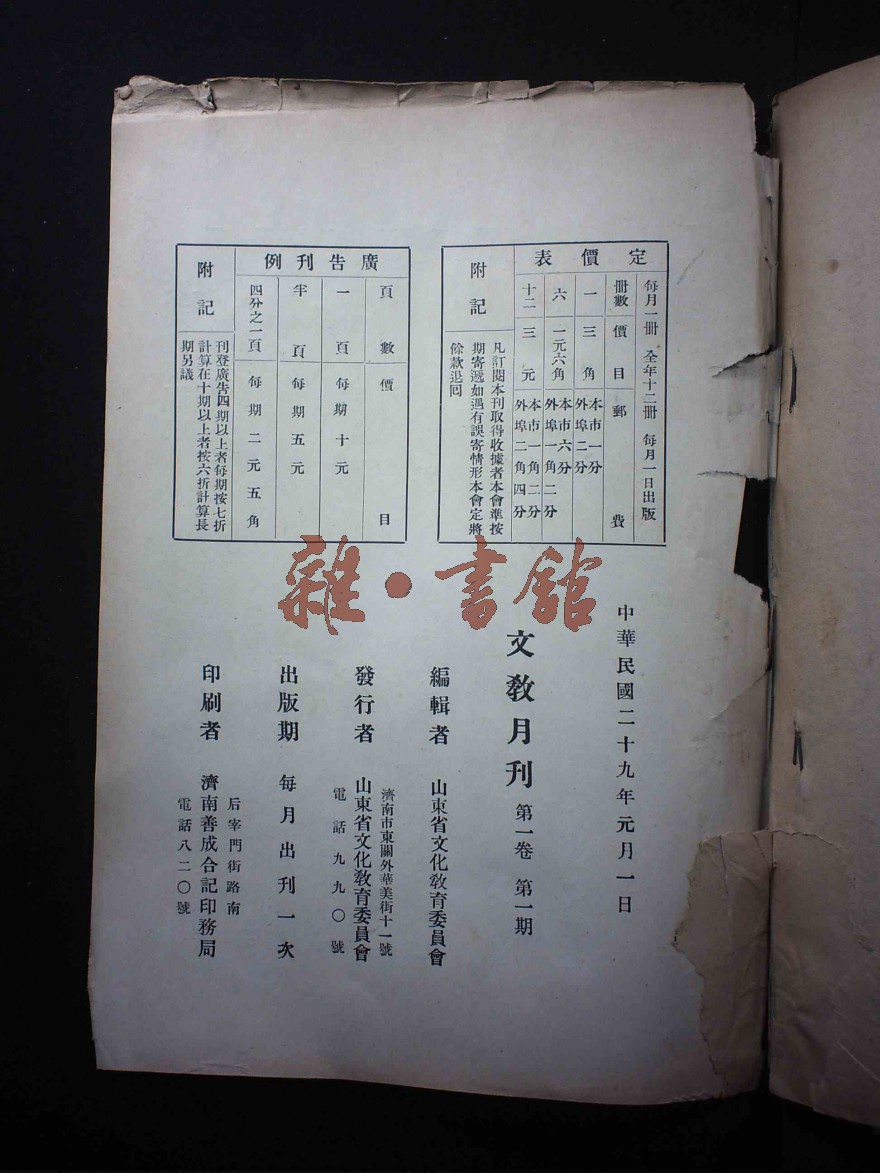 定價表
每月一冊　全年十二冊　每月一日出版
冊數　價目　郵費
一　三角　本市一分　外埠二分
六　一元六角　本市六分　外埠一角二分
十二　三元　本市一角二分　外埠二角四分
附記
凡訂閱本刊取得收據者本會準按
期寄遞如遇有誤寄情形本會定將
餘款退囘
廣告刊例
頁數　價目
一頁　每期十元
半頁　每期五元
四分之一頁　每期二元五角
附記
刊登廣告四期以上者每期按七折
計算在十期以上者按六折計算長
期另議
雜·書館
中華民國二十九年元月一日
文教月刊　第一卷　第一期
編輯者　山東省文化教育委員會
濟南市東關外華美街十一號
發行者　山東省文化教育委員會
電話九九〇號
出版期　每月出刊一次
后宰門街路南
印刷者　濟南善成合記印務局
電話八二〇號